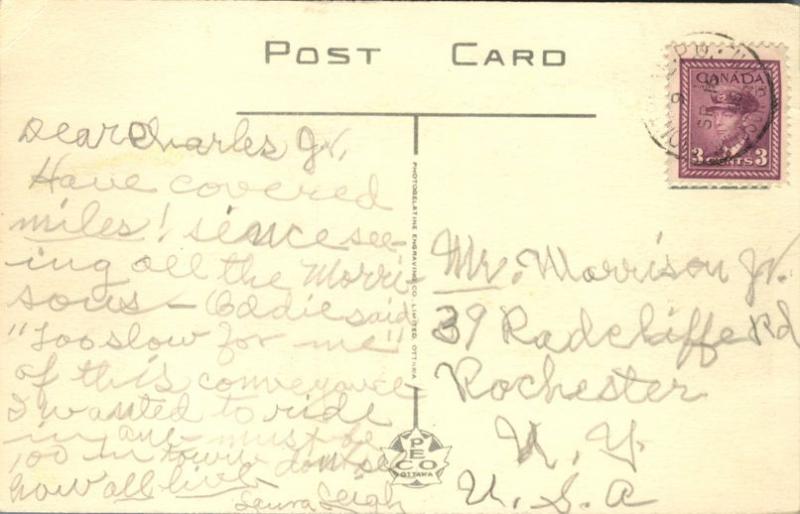 POST CARD
CANADA
3 CENTS 3
Dear Charles Jr,
Have covered
miles! sience see-
ing all the Morri-
sons - Eddie said
"Too slow for me"
of this conveyance
I wanted to ride
in one - must be
100 in town don't see
how all live.
Laura Leigh
PHOTOGELATINE ENGRAVING CO. LIMITED, OTTAWA
PECO
OTTAWA
Mr. Morrison Jr.
39 Radcliffe Rd
Rochester
N. Y.
U. S. A